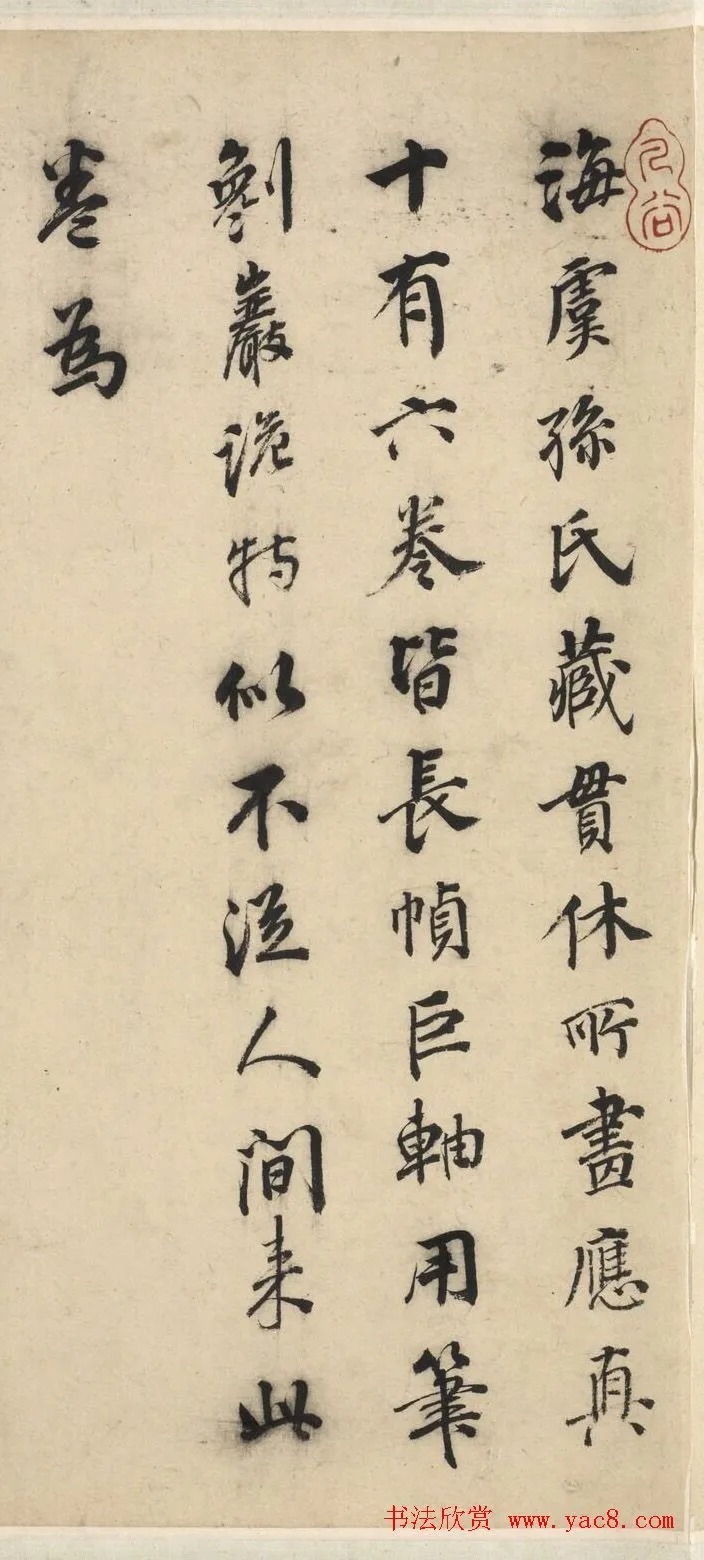 海虞孫氏藏貫休所畫應真
十有六卷皆長幀巨軸用筆
劖巖詭特似不從人間来此
卷為
书法欣赏 www.yac8.com